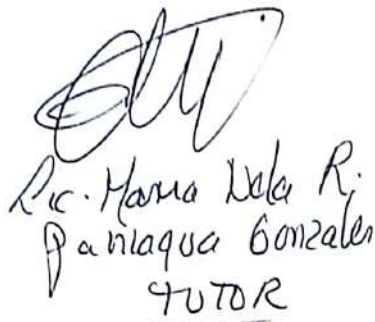 Lic. Maria Dela R.
Paniagua Gonzales
TUTOR